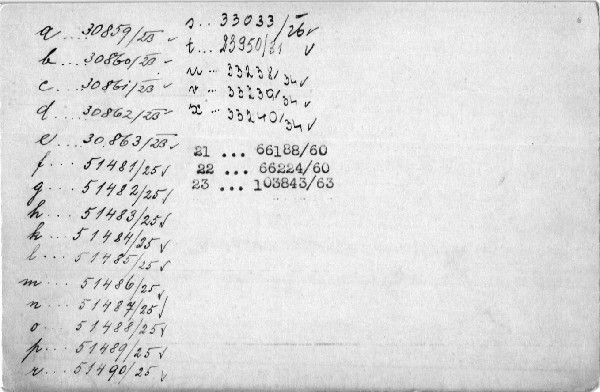 a ... 30859/23 ✓
b .... 30860/23 ✓
c .... 30861/23 ✓
d .... 30862/23 ✓
e .... 30863/23 ✓
f .... 51481/25 ✓
g .... 51482/25 ✓
h .... 51483/25 ✓
k .... 51484/25 ✓
l .... 51485/25 ✓
m .... 51486/25 ✓
n .... 51487/25 ✓
o .... 51488/25 ✓
p .... 51489/25 ✓
r .... 51490/25 ✓
s ... 33033/26 ✓
t ... 23950/31 ✓
u ... 33238/34 ✓
v ... 33239/34 ✓
x ... 33240/34 ✓
21 ... 66188/60
22 ... 66224/60
23 ... 103843/63